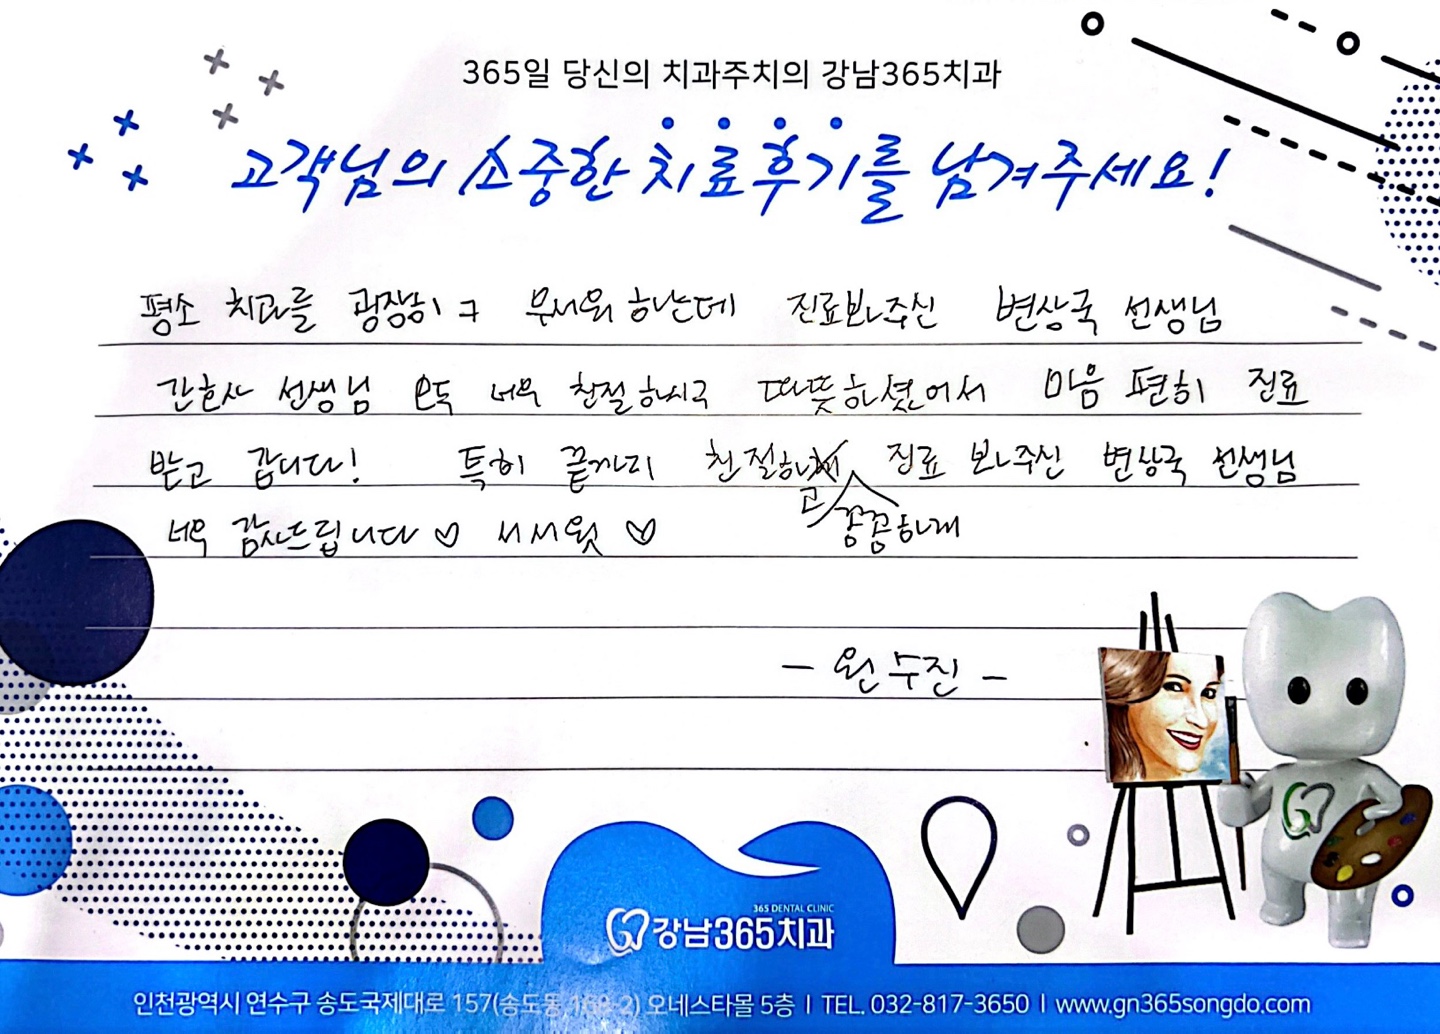 365일 당신의 치과주치의 강남365치과
고객님의 소중한 치료후기를 남겨주세요!
평소 치과를 굉장히 무서워 하는데 진료봐주신 변상국 선생님
간호사 선생님 모두 너무 친절하시고 따뜻하셨어서 마음 편히 진료
받고 갑니다! 특히 끝까지 친절하고 꼼꼼하게 진료 봐주신 변상국 선생님
너무 감사드립니다♡ ♡
- 원수진 -
365 DENTAL CLINIC
강남365치과
인천광역시 연수구 송도국제대로 157(송도동,168-2) 오네스타몰 5층 | TEL. 032-817-3650 | www.gn365songdo.com